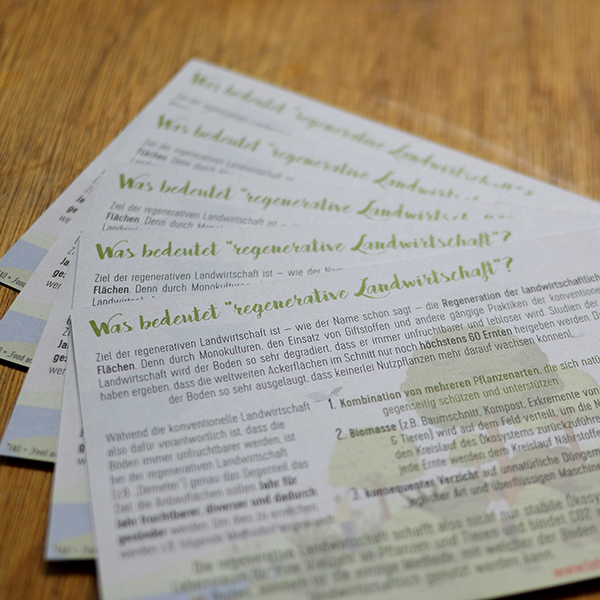 Was bedeutet "regenerative Landwirtschaft"?
Was bedeutet "regenerative Landwirtschaft"?
Ziel der regenerativen Landwirtschaft ist –
Flächen. Denn durch
Was bedeutet "regenerative Landwirtschaft"
Ziel der regenerativen Landwirtschaft ist –
Flächen. Denn durch Monokulturen
Was bedeutet "regenerative Landwirtschaft"?
Ziel der regenerativen Landwirtschaft ist – wie der Name
Flächen. Denn durch Monokulturen
Was bedeutet "regenerative Landwirtschaft"?
Ziel der regenerativen Landwirtschaft ist – wie der Name schon sagt – die Regeneration der landwirtschaftlich
Flächen. Denn durch Monokulturen, den Einsatz von Giftstoffen und andere gängige Praktiken der konventione
Landwirtschaft wird der Boden so sehr degradiert, dass er immer unfruchtbarer und lebloser wird. Studien der
haben ergeben, dass die weltweiten Ackerflächen im Schnitt nur noch höchstens 60 Ernten hergeben werden. Da
der Boden so sehr ausgelaugt, dass keinerlei Nutzpflanzen mehr darauf wachsen können!
Während die konventionelle Landwirtschaft
also dafür verantwortlich ist, dass die
Böden immer unfruchtbarer werden, ist
bei der regenerativen Landwirtschaft
(z.B. „Demeter") genau das Gegenteil das
Ziel: die Anbauflächen sollen Jahr für
Jahr fruchtbarer, diverser und dadurch
gesünder werden. Um dies zu erreichen,
werden z.B. folgende Methoden
1. Kombination von mehreren Pflanzenarten, die sich natü
gegenseitig schützen und unterstützen.
2. Biomasse (z.B. Baumschnitt, Kompost, Exkremente von
& Tieren) wird auf dem Feld verteilt, um die N
den Kreislauf des Ökosystems zurückzuführe
jede Ernte werden dem Kreislauf Nährstoffe
3. konsequenter Verzicht auf unnatürliche Düngem
jeglicher Art und überflüssigen Maschine
Die regenerative Landwirtschaft schafft also nicht nur stabile Ökosy
Lebensraum für eine Vielzahl an Pflanzen und Tieren und bindet CO2
im Boden, sondern ist die einzige Methode, mit welcher der Boden
landwirtschaftlich genutzt werden kann.